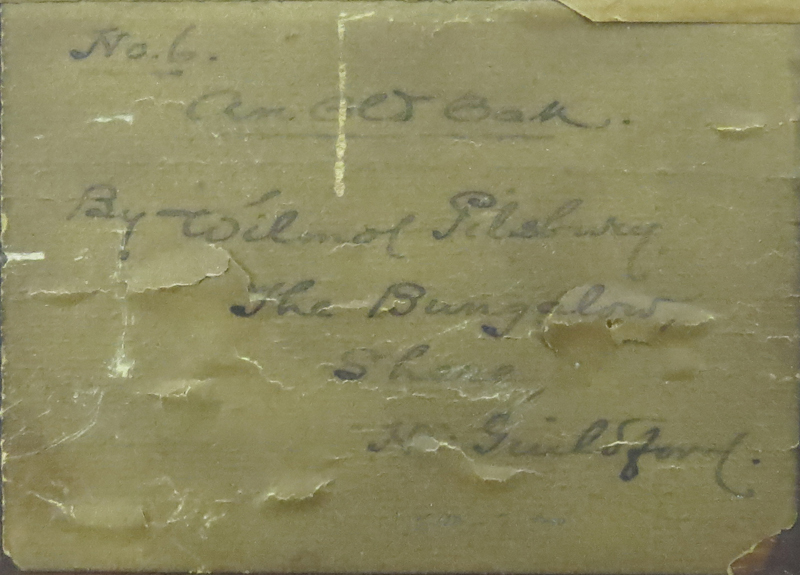 No. 6.
An Old Oak.
By Wilmot Pilsbury
The Bungalow,
Shere,
Nr Guildford.